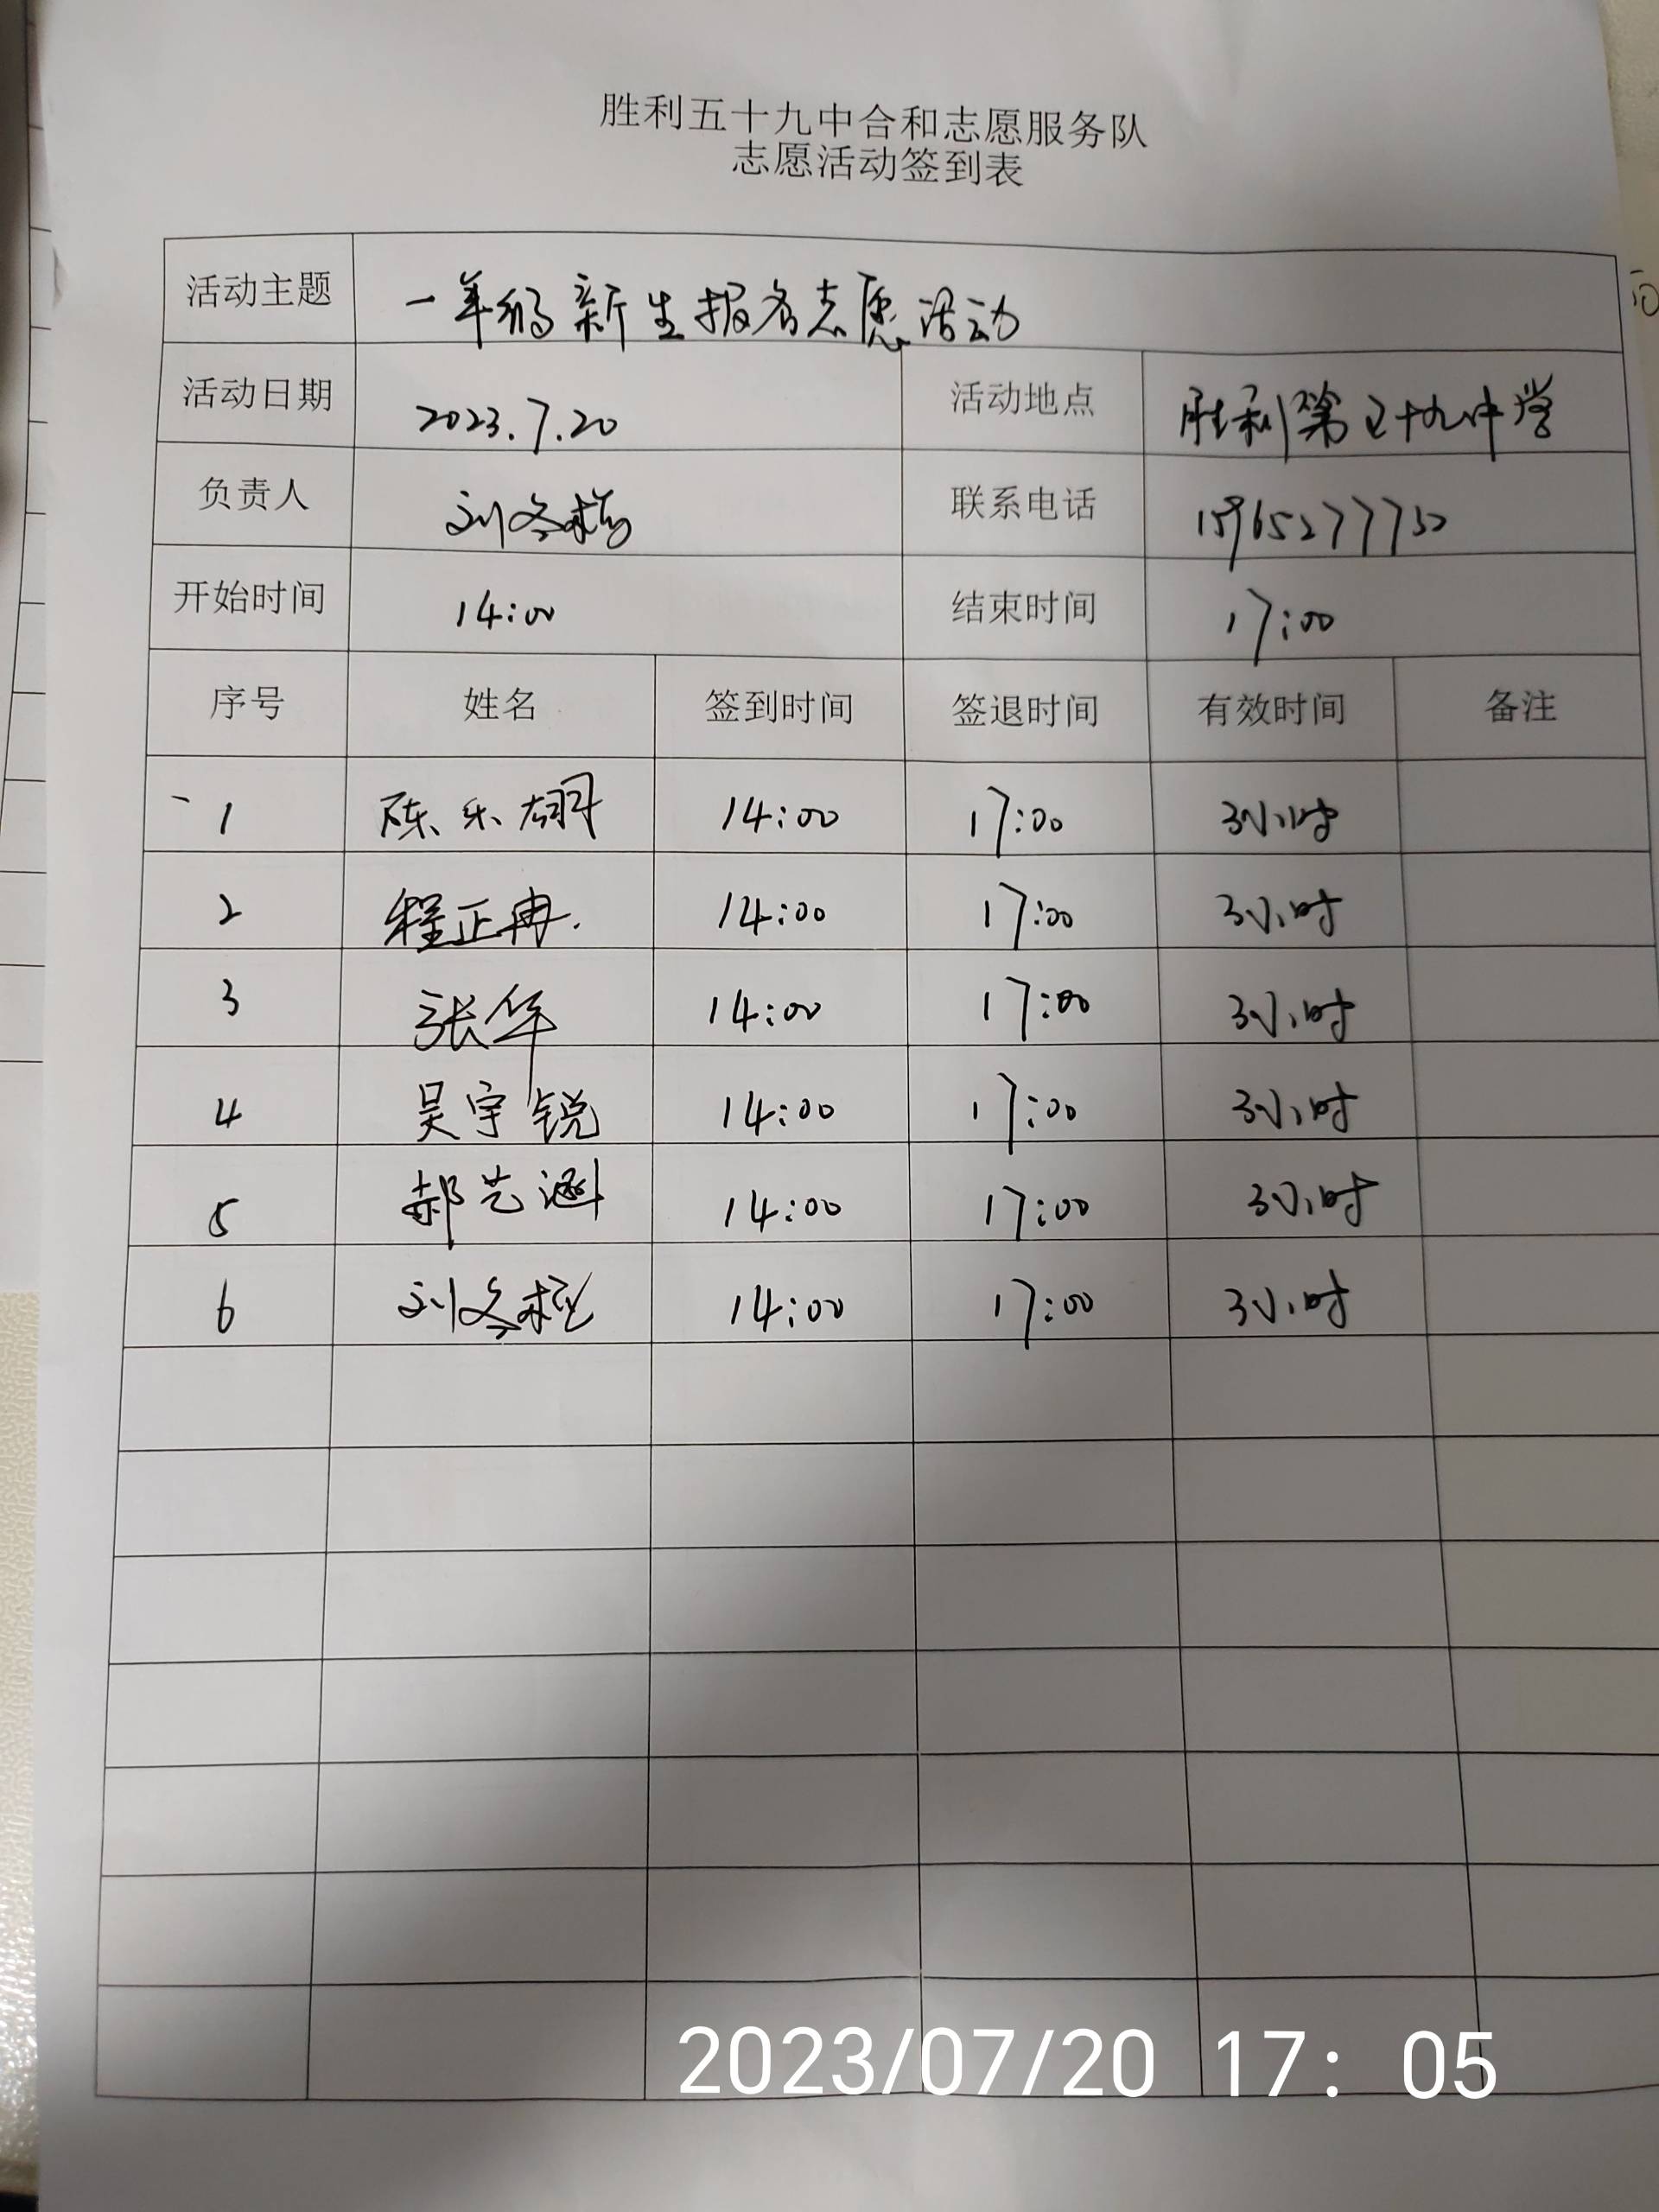 胜利五十九中合和志愿服务队
志愿活动签到表
活动主题 一年级新生报名志愿活动
活动日期 2023.7.20 活动地点 胜利第五十九中学
负责人 刘冬 联系电话
开始时间 14:00 结束时间 17:00
序号 姓名 签到时间 签退时间 有效时间 备注
1 陈乐翮 14:00 17:00 3小时
2 程正冉 14:00 17:00 3小时
3 张华 14:00 17:00 3小时
4 吴宇锐 14:00 17:00 3小时
5 郝艺涵 14:00 17:00 3小时
6 刘冬 14:00 17:00 3小时
2023/07/20 17:05